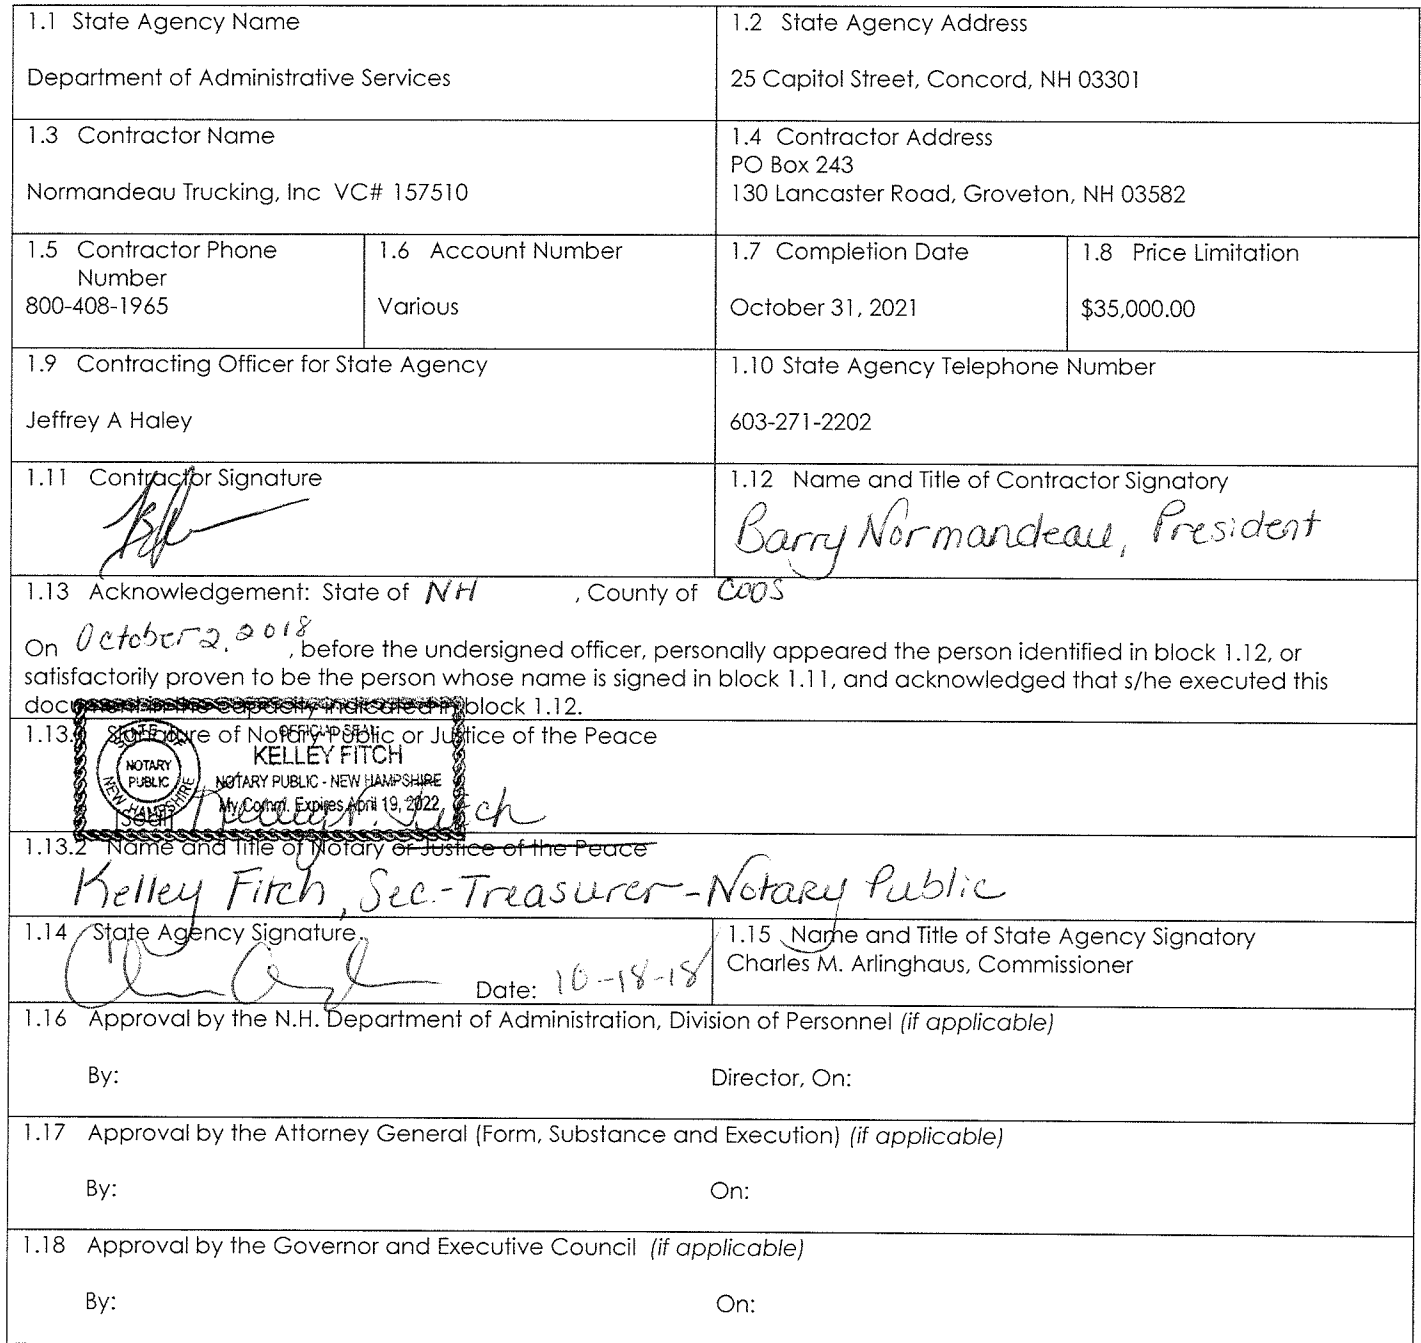 1.1 State Agency Name
Department of Administrative Services
1.2 State Agency Address
25 Capitol Street, Concord, NH 03301
1.3 Contractor Name
Normandeau Trucking, Inc VC# 157510
1.4 Contractor Address
PO Box 243
130 Lancaster Road, Groveton, NH 03582
1.5 Contractor Phone
Number
800-408-1965
1.6 Account Number
Various
1.7 Completion Date
October 31, 2021
1.8 Price Limitation
$35,000.00
1.9 Contracting Officer for State Agency
Jeffrey A Haley
1.10 State Agency Telephone Number
603-271-2202
1.11 Contractor Signature
1.12 Name and Title of Contractor Signatory
Barry Normandeau, President
1.13 Acknowledgement: State of NH , County of COOS
On October 2, 2018, before the undersigned officer, personally appeared the person identified in block 1.12, or
satisfactorily proven to be the person whose name is signed in block 1.11, and acknowledged that s/he executed this
document in the capacity indicated in block 1.12.
1.13. Signature of Notary Public or Justice of the Peace
OFFICIAL SEAL
KELLEY FITCH
NOTARY PUBLIC - NEW HAMPSHIRE
My Comm. Expires April 19, 2022
STATE OF
NOTARY
PUBLIC
NEW HAMPSHIRE
[Seal]
Fitch
1.13.2 Name and Title of Notary or Justice of the Peace
Kelley Fitch, Sec.-Treasurer-Notary Public
1.14 State Agency Signature
Date: 10-18-18
1.15 Name and Title of State Agency Signatory
Charles M. Arlinghaus, Commissioner
1.16 Approval by the N.H. Department of Administration, Division of Personnel (if applicable)
By: Director, On:
1.17 Approval by the Attorney General (Form, Substance and Execution) (if applicable)
By: On:
1.18 Approval by the Governor and Executive Council (if applicable)
By: On: